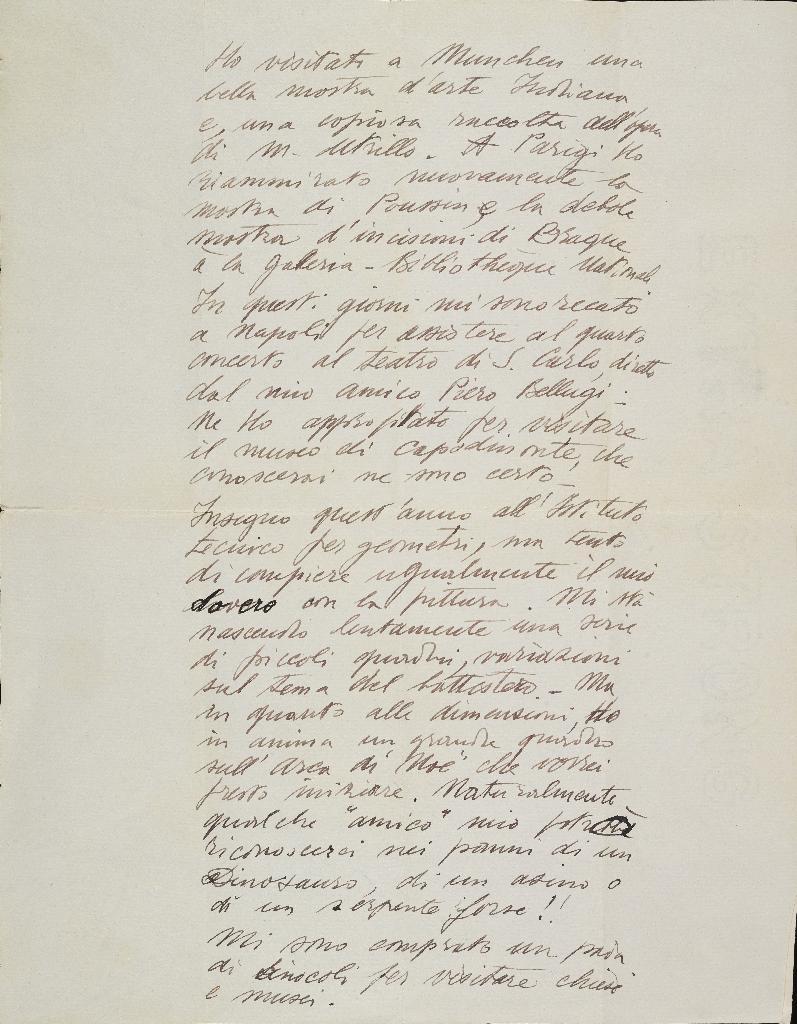 Ho visitato a Munchen una
bella mostra d'arte Indiana
e, una copiosa raccolta dell'opera
di M. Utrillo. A Parigi ho
riammirato nuovamente la
mostra di Poussin e la debole
mostra d'incisioni di Braque
a la galeria - Bibliothèque Nationale
In questi giorni mi sono recato
a Napoli per assistere al quarto
concerto al teatro di S. Carlo, diretto
dal mio amico Piero Bellugi.
Ne ho approfittato per visitare
il museo di Capodimonte, che
conoscerai ne sono certo.
Insegno quest'anno all'Istituto
tecnico per geometri, ma tento
di compiere ugualmente il mio
dovere con la pittura. Mi stà
nascendo lentamente una serie
di piccoli quadri, variazioni
sul tema del battistero. - Ma
in quanto alle dimensioni, ho
in anima un grande quadro
sull'Arca di Noè che vorrei
presto iniziare. Naturalmente
qualche "amico" mio potrà
riconoscersi nei panni di un
Dinosauro, di un asino o
di un serpente forse!!
Mi sono comprato un paia
di binocoli per visitare chiese
e musei.